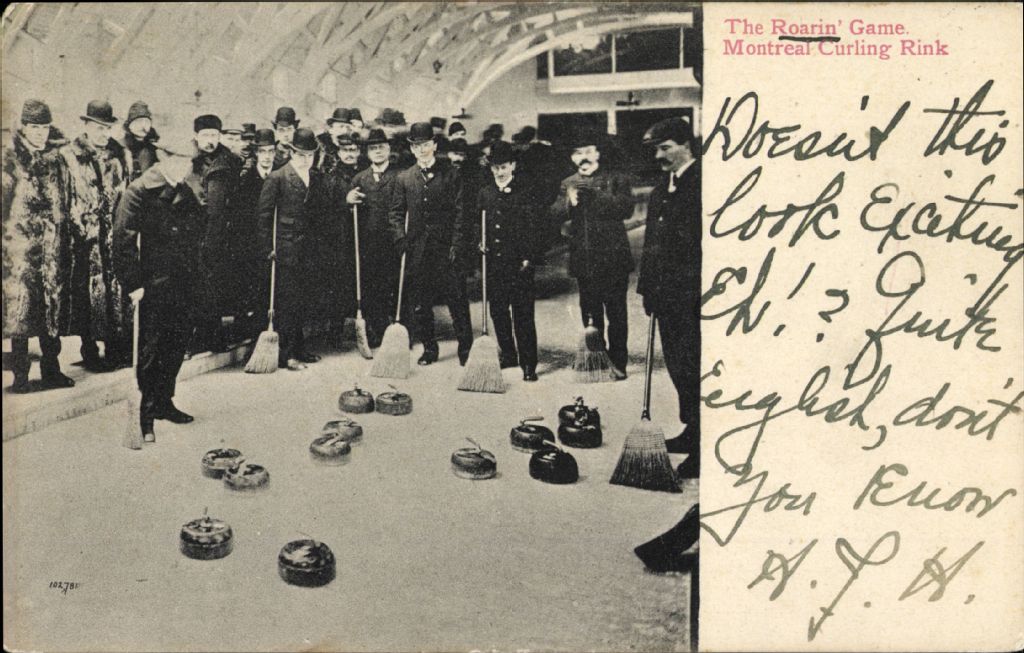 The Roarin' Game.
Montreal Curling Rink
Doesn't this
look Exciting
Eh! ? Quite
English, don't
You Know
A. J. H.
102,781